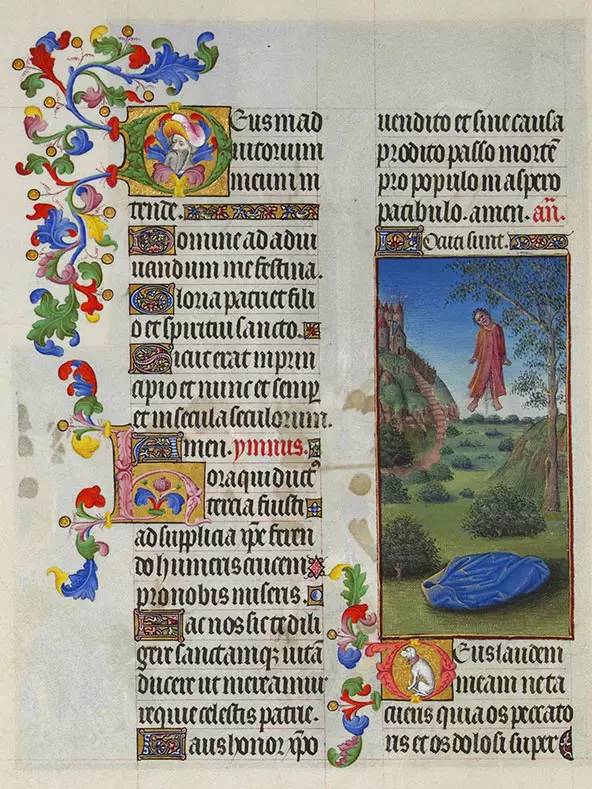 Deus in ad
iutorium
meum in
tende.
Domine ad adiu
uandum me festina.
Gloria patri et fili
o et spiritui sancto.
Sicut erat in prin
cipio et nunc et semp
et in secula seculorum.
Amen. ymnus.
Hora qui duct⁹
tercia fuisti
ad supplicia xpe feren
do humeris crucem
pro nobis miseris.
Fac nos sic te dili
gere sanctamqꝫ uitā
ducere ut mereamur
requie celestis patrie.
Laus honor xpo
uendito et sine causa
prodito passo mortē
pro populo in aspero
patibulo. amen. añ.
Locuti sunt.
Deus laudem
meam ne ta
cueris quia os peccato
ris et os dolosi super